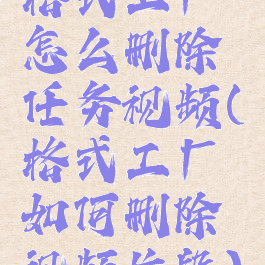 格式工厂
怎么删除
任务视频(
格式工厂
如何删除
视频片段)